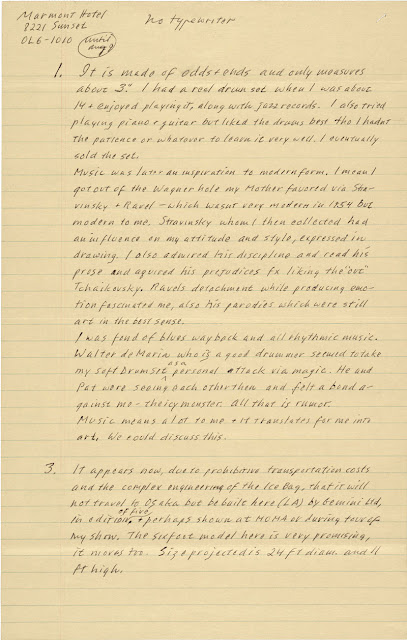 Marmont Hotel
8221 Sunset
OL6-1010
until
aug 8
No typewriter
1. It is made of odds + ends and only measures
about 3". I had a real drum set when I was about
14 + enjoyed playing it, along with jazz records. I also tried
playing piano + guitar but liked the drums best tho I hadnt
the patience or whatever to learn it very well. I eventually
sold the set.
Music was later an inspiration to modern form. I mean I
got out of the Wagner hole my Mother favored via Stra-
vinsky + Ravel - which wasnt very modern in 1954 but
modern to me. Stravinsky whom I then collected had
an influence on my attitude and style, expressed in
drawing. I also admired his discipline and read his
prose and aquired his prejudices fx liking the "out"
Tchaikovsky. Ravels detachment while producing emo-
tion fascinated me, also his parodies which were still
art in the best sense.
I was fond of blues way back and all rhythmic music.
Walter de Maria who is a good drummer seemed to take
my Soft Drumset as a personal attack via magic. He and
Pat were seeing each other then and felt a bond a-
gainst me - the icy monster. All that is rumor.
Music means a lot to me + it translates for me into
art. We could discuss this.
3. It appears now, due to prohibitive transportation costs
and the complex engineering of the Ice Bag, that it will
not travel to Osaka but be built here (LA) by Gemini Ltd,
in edition of five, + perhaps shown at MOMA or during tour of
my show. The six foot model here is very promising,
it moves too. Size projected is 24 ft diam. and 11
ft high.